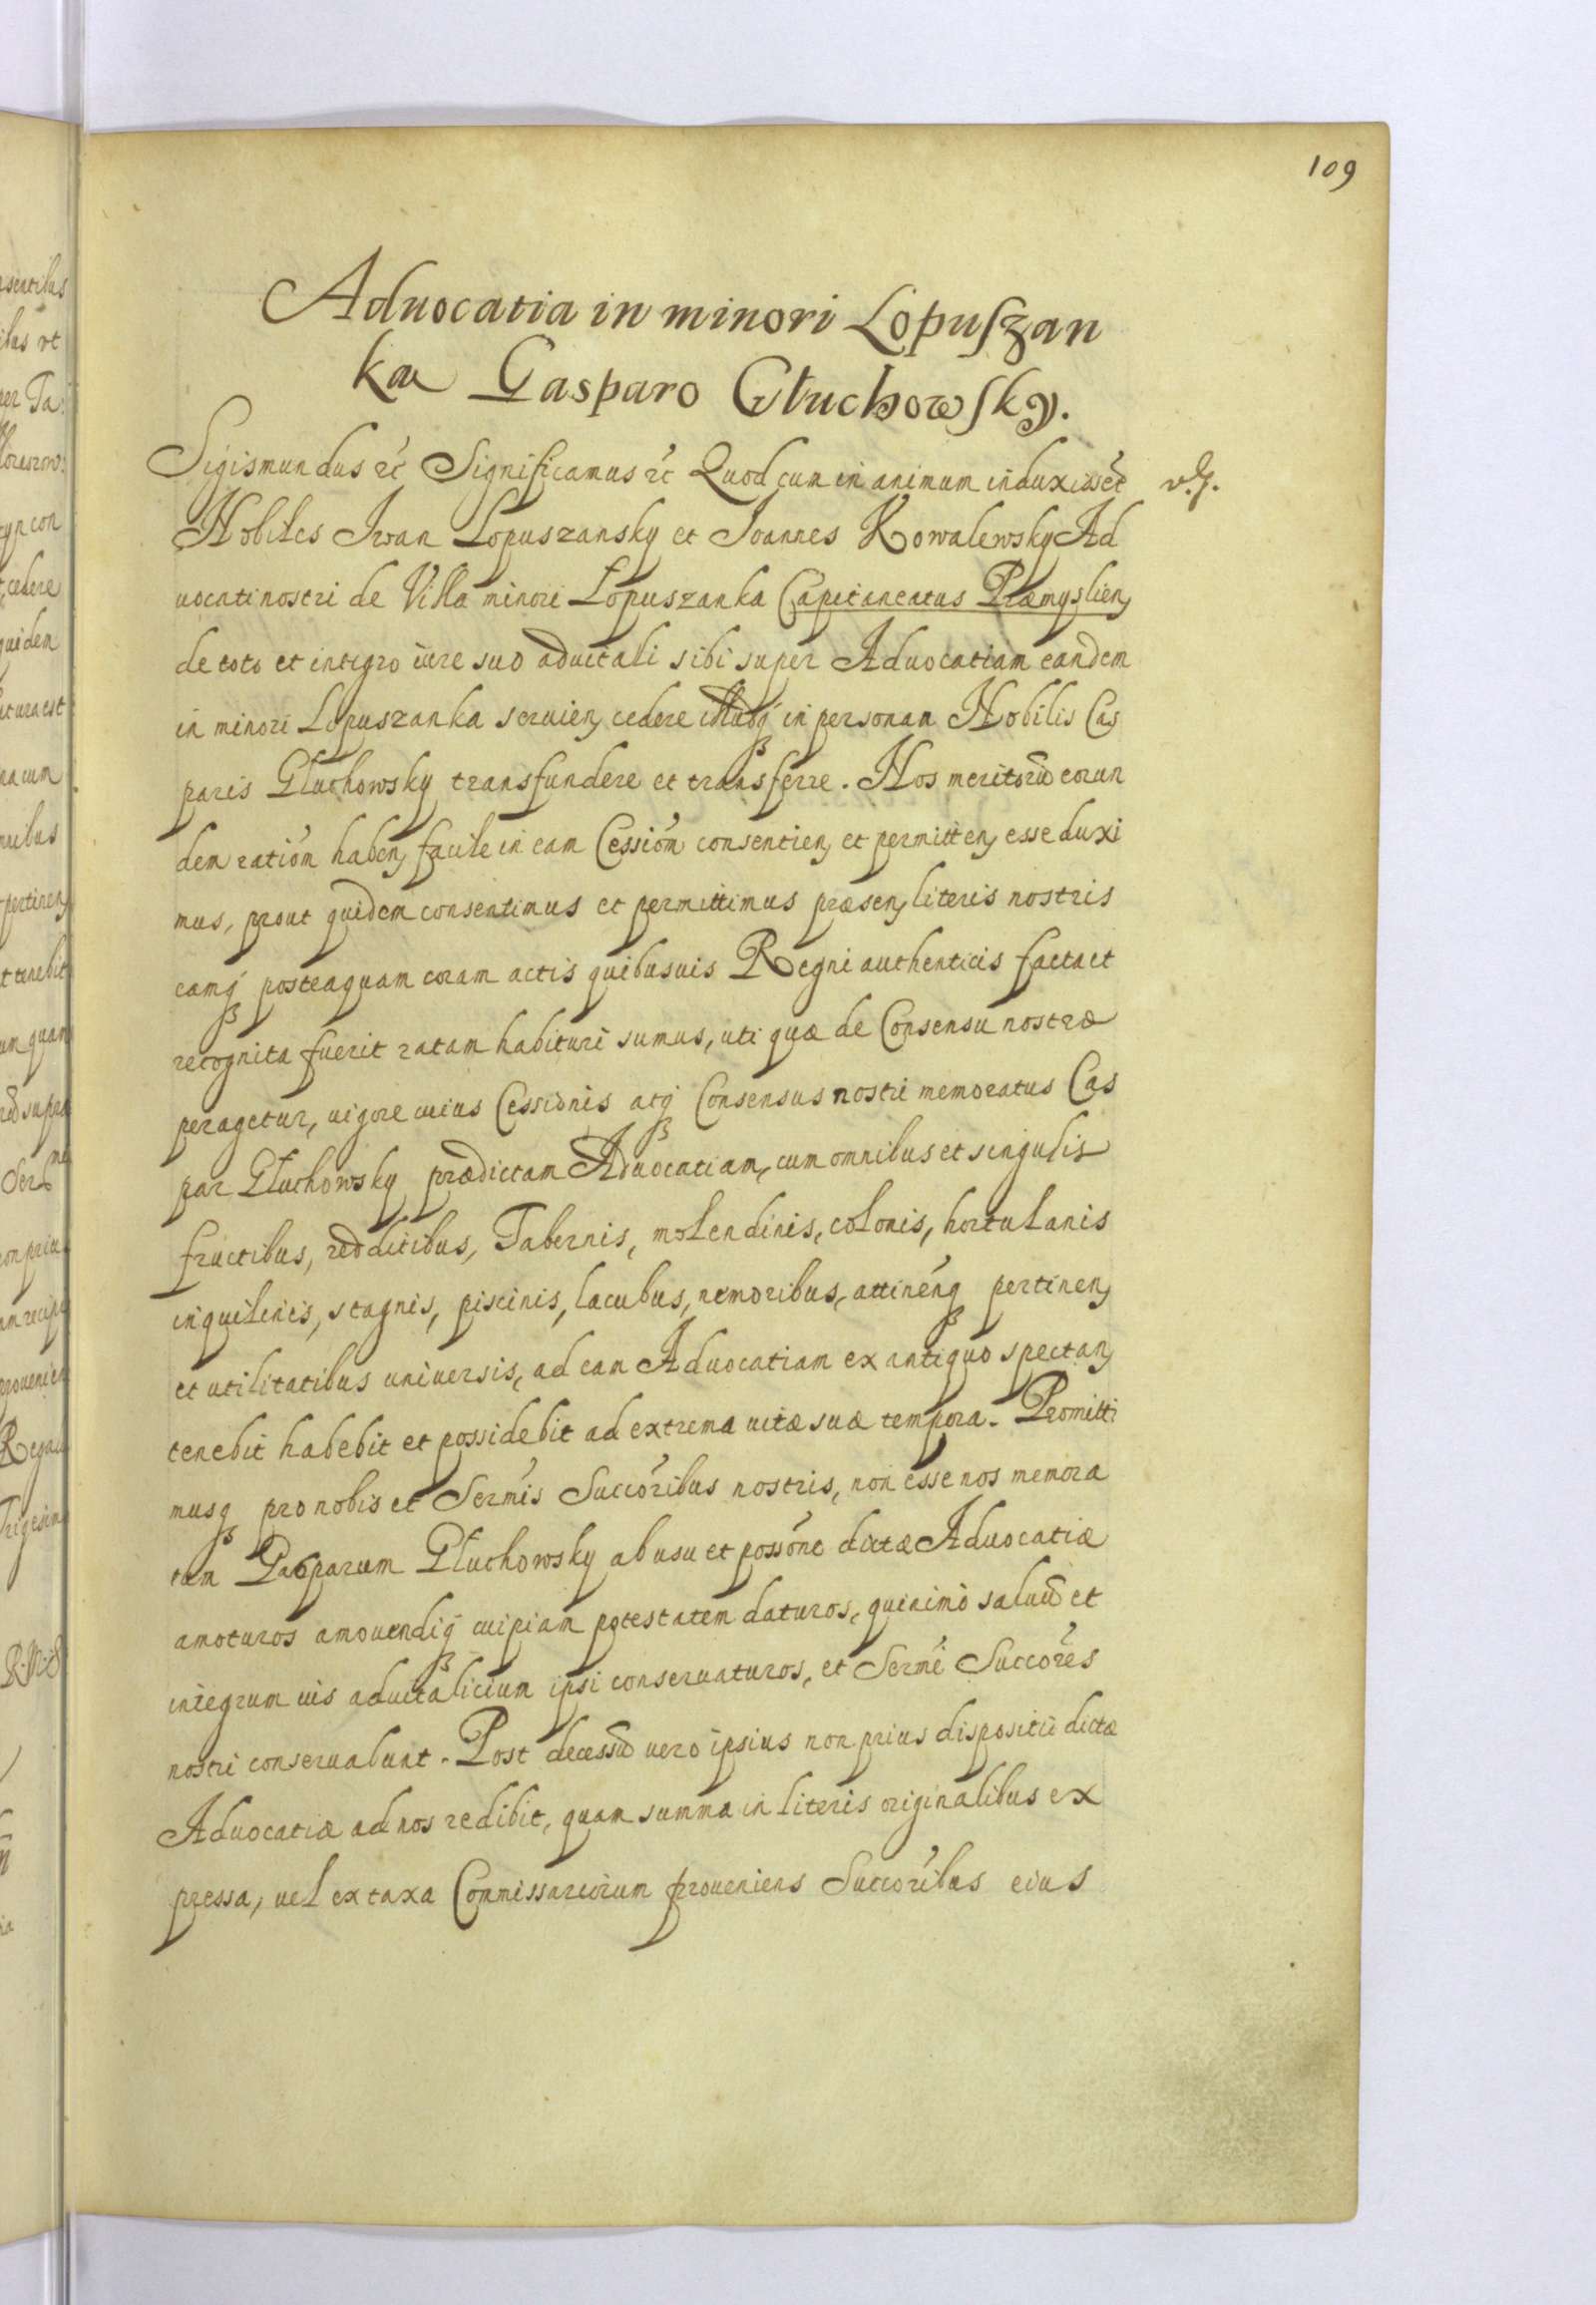 109
Aduocatia in minori Lopuszan
ka Gasparo Głuchowsky.
Sigismundus etc Significamus etc Quod cum in animum induxissẽt
Nobiles Iwan Lopuszansky et Ioannes Kowalewsky Ad
uocati nostri de Villa minori Lopuszanka Capitaneatus Præmyslien,
de toto et integro iure suo aduitali sibi super Aduocatiam eandem
in minori Lopuszanka seruien, cedere illudq́ in personam Nobilis Cas
paris Gluchowsky transfundere et transferre. Nos meritorũ eorun
dem ratiõn haben, facile in eam Cessiõn consentien, et permitten, esse duxi
mus, prout quidem consentimus et permittimus præsen, literis nostris
eamq́ posteaquam coram actis quibusuis Regni authenticis facta et
recognita fuerit ratam habituri sumus, uti quæ de Consensu nostro
peragetur, uigore cuius Cessionis atq́ Consensus nostri memoratus Cas
par Gluchowsky prædictam Aduocatiam, cum omnibus et singulis
fructibus, redditibus, Tabernis, molendinis, colonis, hortulanis
inquilinis, stagnis, piscinis, lacubus, nemoribus, attinẽnq pertinen,
et utilitatibus uniuersis, ad eam Aduocatiam ex antiquo spectan,
tenebit habebit et possidebit ad extrema uitæ suæ tempora. Promitti
musq pro nobis et Sermĩs Succõribus nostris, non esse nos memora
tum Gasparum Gluchowsky ab usu et possõne dictæ Aduocatiæ
amoturos amouendiq́ cuipiam potestatem daturos, quinimò saluũ et
integrum ius aduitalicium ipsi conseruaturos, et Sermĩ Succõres
nostri conseruabunt. Post decessũ uero ipsius non prius dispositiõ dictæ
Aduocatiæ ad nos redibit, quam summa in literis originalibus ex
pressa, uel ex taxa Commissariorum proueniens Succõribus eius